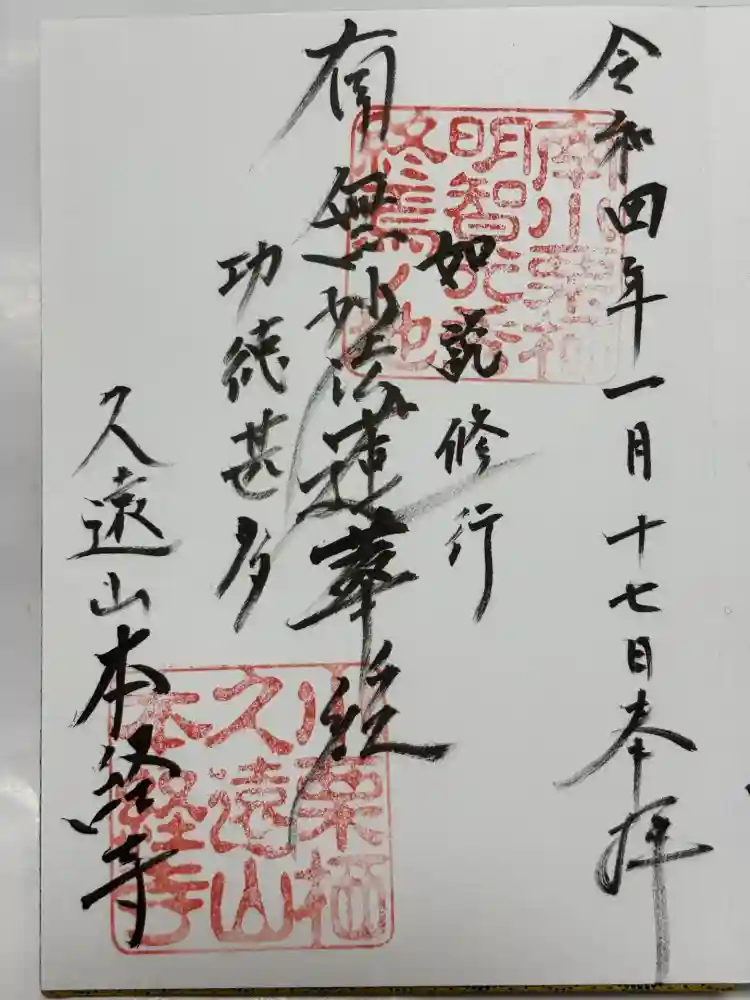 令和四年一月十七日奉拝
南小栗栖
明智光秀
終焉ノ地
如説修行
南無妙法蓮華経
功徳甚多
久遠山本経寺
小栗栖
久遠山
本経寺